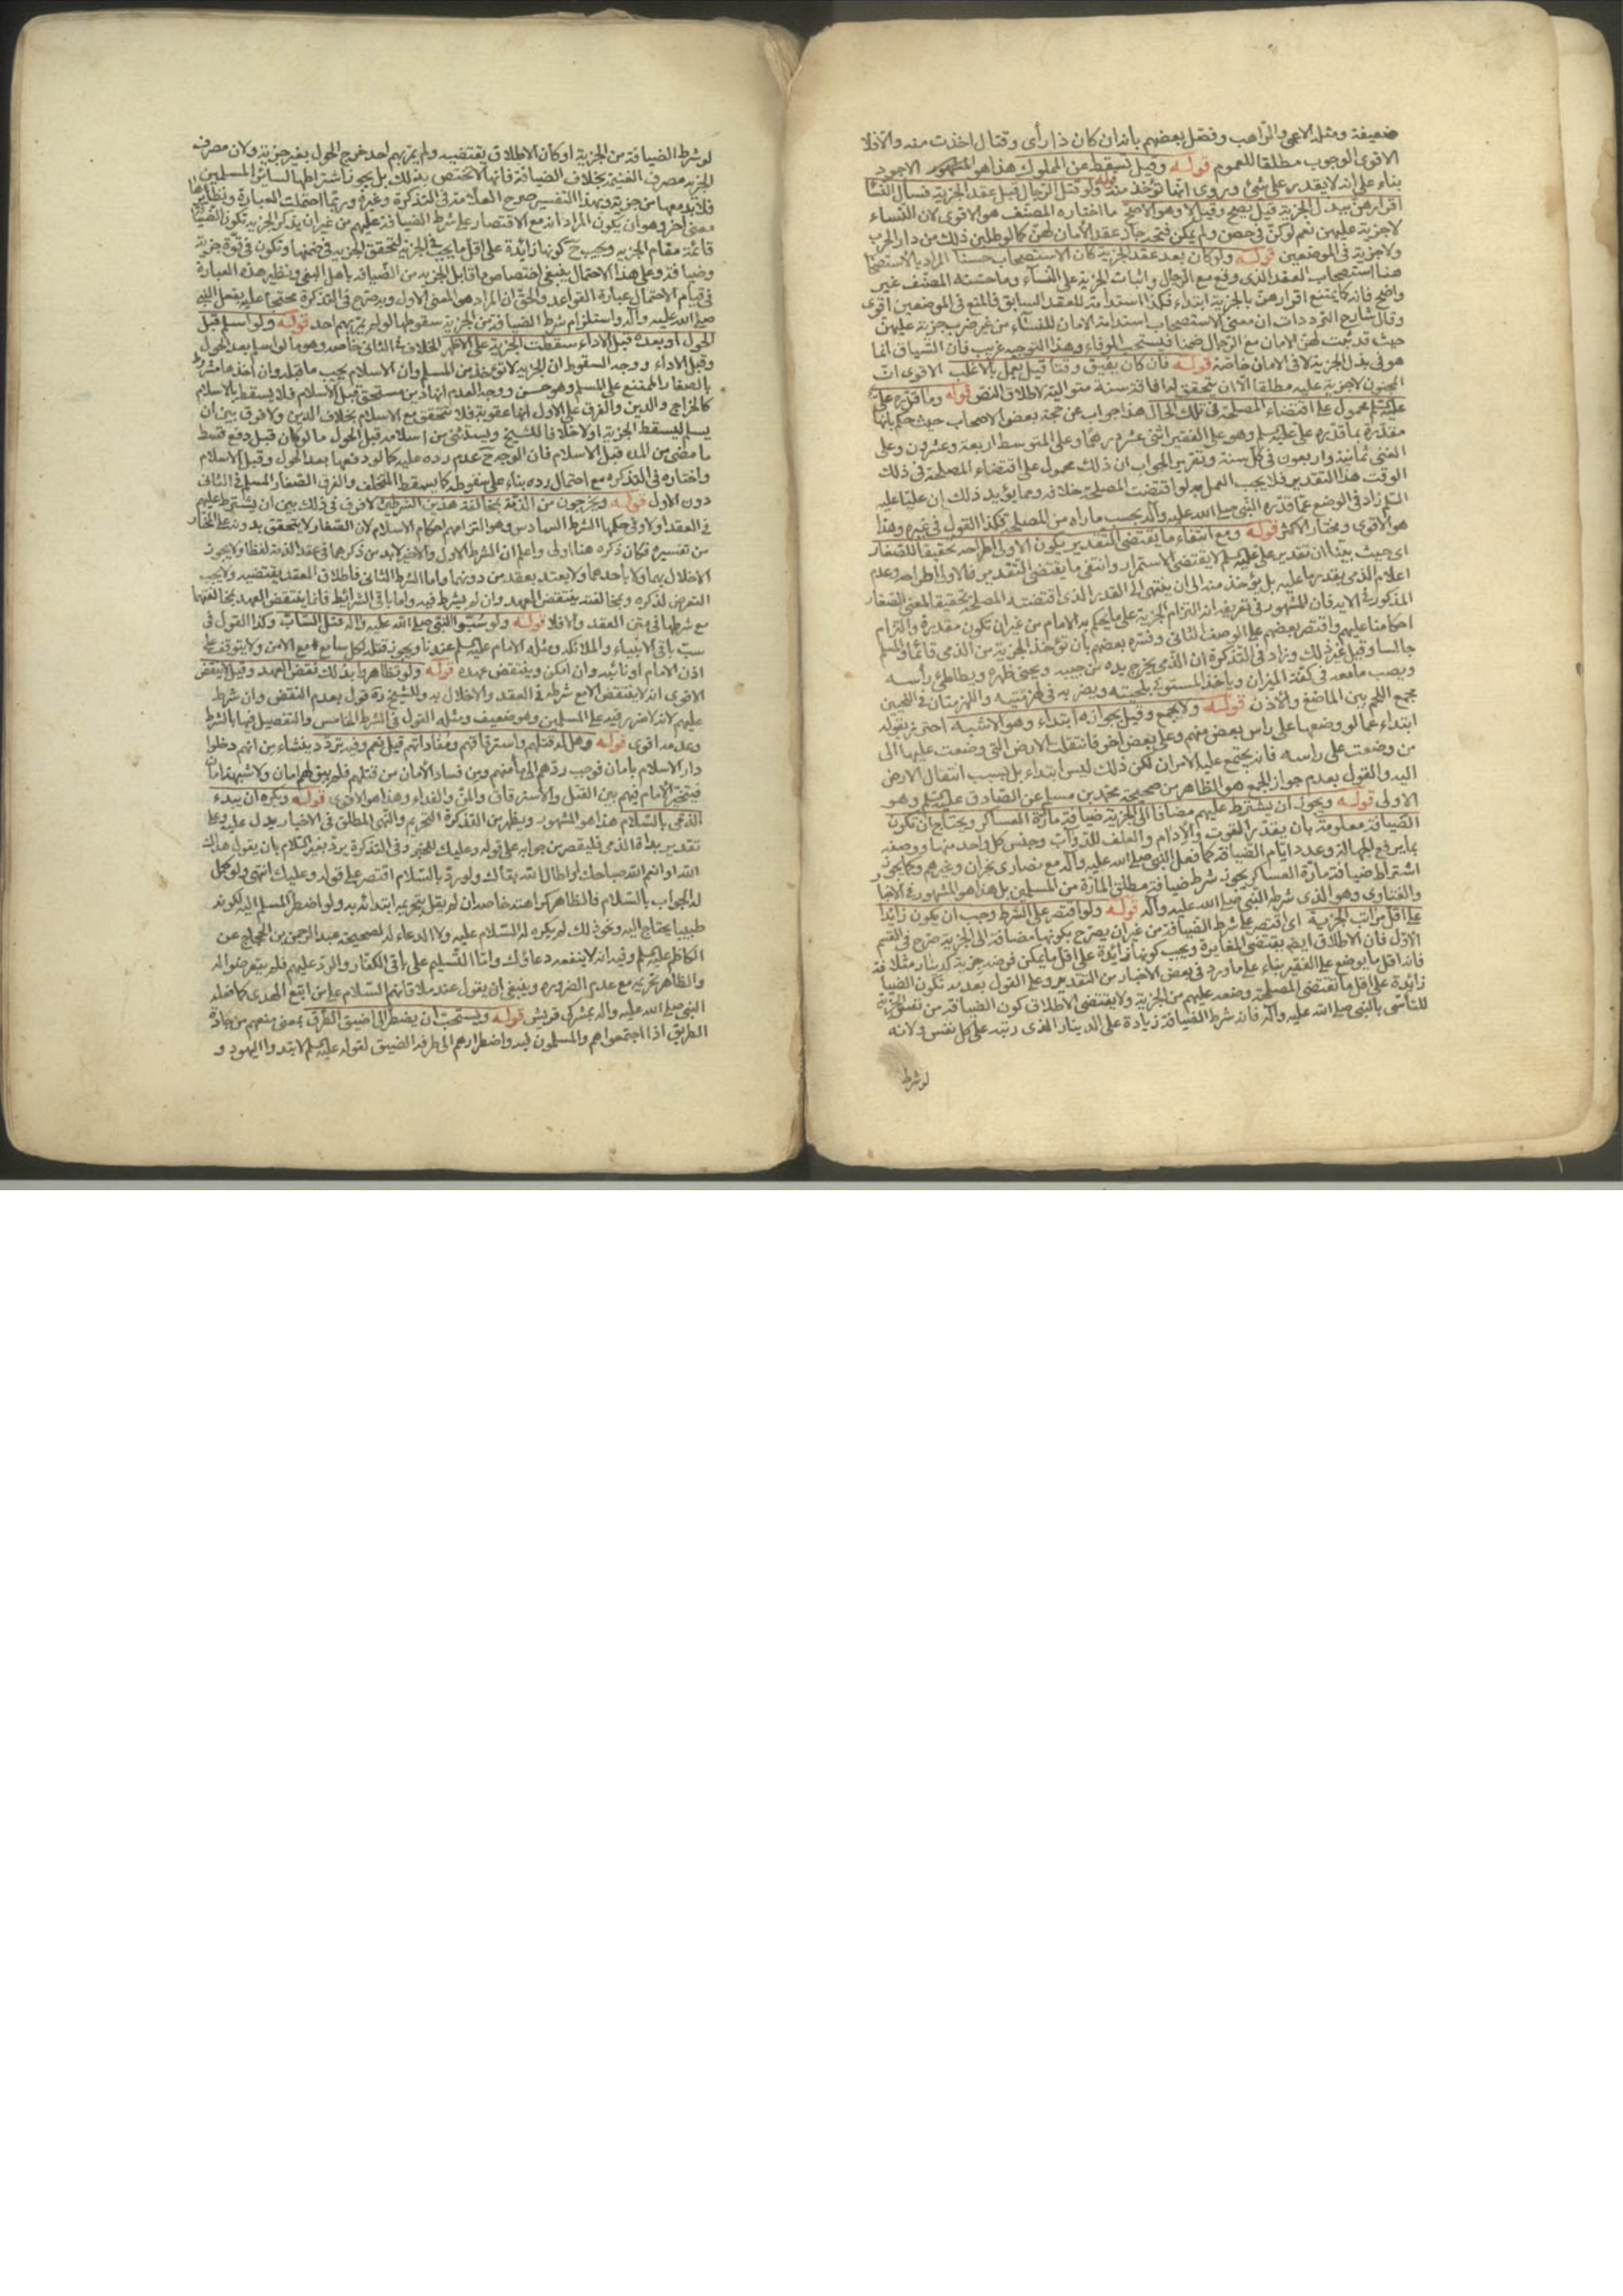 ضعيفة ومثله الاعمى والراهب وفصل بعضهم بانه ان كان ذا رأى وقتال اخذت منه والا فلا
الاقوى الوجوب مطلقا للعموم قوله وقيل تسقط عن المملوك هذا هو المشهور الاجود
بناء على انه لا يقدر على شئ وروى انها تؤخذ منه قوله ولو قتل الرجال قبل عقد الجزية فسأل النسآ
اقرارهن ببذل الجزية قيل يصح وقيل لا وهو الاصح ما اختاره المصنف هو الاقوى لان النساء
لا جزية عليهن نعم لو كن فى حصن ولم يمكن فتحه جاز عقد الأمان لهن كما لو طلبن ذلك من دار الحرب
ولا جزية فى الموضعين قوله ولو كان بعد عقد الجزية كان الاستصحاب حسنا المراد بالاستصحا
هنا استصحاب العقد الذى وقع مع الرجال واثبات الجزية على النسآء وما حسنه المصنف غير
واضح فانه كما يمتنع اقرارهن بالجزية ابتداء فكذا استدامة للعقد السابق فالمنع فى الموضعين اقوى
وقال شارح الترددات ان معنى الاستصحاب استدامة الامان للنسآء من غير ضرب جزية عليهن
حيث قد ثبت لهن الامان مع الرجال ضمنا فيستصحب للوفاء وهذا التوجيه غريب فان السياق انما
هو فى بذل الجزية لا فى الامان خاصة قوله فان كان يفيق وقتا قيل يعمل بالاغلب الاقوى ان
المجنون لا جزية عليه مطلقا الا ان يتحقق له افاقة سنة متوالية لاطلاق النص قوله وما قرره على
عليه السلم محمول على اقتضاء المصلحة فى تلك الحال هذا جواب عن حجة بعض الاصحاب حيث حكم بانها
مقدرة بما قدره على عليه السلم وهو على الفقير اثنى عشر درهما وعلى المتوسط اربعة وعشرون وعلى
الغنى ثمانية واربعون فى كل سنة وتقرير الجواب ان ذلك محمول على اقتضاء المصلحة فى ذلك
الوقت هذا التقدير فلا يجب العمل به لو اقتضت المصلحة خلافه ومما يؤيد ذلك ان عليا عليه
السلم زاد فى الوضع عما قدره النبى صلى الله عليه وآله بحسب ما راه من المصلحة فكذا القول فى غيره وهذا
هو الاقوى ومختار الاكثر قوله ومع انتفاء ما يقتضى التقدير يكون الاولى اطراحه تحقيقا للصغار
اى حيث بينا ان تقدير على عليه السلم لا يقتضى الاستمرار وانتفى ما يقتضى التقدير فالاولى اطراحه وعدم
اعلام الذمى بقدر ما عليه بل يؤخذ منه الى ان ينتهى الى القدر الذى اقتضته المصلحة تحقيقا لمعنى الصغار
المذكور فى الاية فان المشهور فى تعريفه انه التزام الجزية على ما يحكم به الامام من غير ان تكون مقدرة والتزام
احكامنا عليهم واقتصر بعضهم على الوصف الثانى وفسره بعضهم بان تؤخذ الجزية من الذمى قائما والمسلم
جالسا وقيل غير ذلك وزاد فى التذكرة ان الذمى يخرج يده من جيبه ويحنى ظهره ويطاطئ رأسه
ويصب ما معه فى كفة الميزان وياخذ المستوفى بلحيته ويضربه فى لهزمتيه واللهزمتان فى اللحيين
مجمع اللحم بين الماضغ والاذن قوله ولا يجمع وقيل بجوازه ابتداء وهو الاشبه احترز بقوله
ابتداء عما لو وضعها على راس بعض منهم وعلى بعض اخر فانتقلت الارض التى وضعت عليها الى
من وضعت على راسه فانه يجتمع عليه الامران لكن ذلك ليس ابتداء بل بسبب انتقال الارض
اليه والقول بعدم جواز الجمع هو الظاهر من صحيحة محمد بن مسلم عن الصادق عليه السلم وهو
الاولى قوله ويجوز ان يشترط عليهم مضافا الى الجزية ضيافة مارة العساكر ويحتاج ان تكون
الضيافة معلومة بان يقدر القوت والإدام والعلف للدواب وجنس كل واحد منها ووصفه
بما يرفع الجهالة وعدد ايام الضيافة كما فعل النبى صلى الله عليه وآله مع نصارى نجران وغيرهم وكما يجوز
اشتراط ضيافة مارة العساكر يجوز شرط ضيافة مطلق المارة من المسلمين بل هذا هو المشهور فى الاخبا
والفتاوى وهو الذى شرطه النبى صلى الله عليه وآله قوله ولو اقتصر على الشرط وجب ان يكون زائدا
على اقل مراتب الجزية اى اقتصر على شرط الضيافة من غير ان يصرح بكونها مضافة الى الجزية صرح فى القسم
الاول فان الاطلاق ايضا يقتضى المغايرة ويجب كونها زائدة على اقل ما يمكن فرضه جزية كدينار مثلا فة
فانه اقل ما يوضع على الفقير بناء على ما ورد فى بعض الاخبار من التقدير وعلى القول بعدمه تكون الضيا
زائدة على اقل ما تقتضى المصلحة وضعه عليهم من الجزية ولا يقتضى الاطلاق كون الضيافة من نفس الجزية
للتأسى بالنبى صلى الله عليه وآله فانه شرط الضيافة زيادة على الدينار الذى رتبه على كل نفس ولانه
لو شرط
لو شرط الضيافة من الجزية او كان الاطلاق يقتضيه ولم يمر بهم احد خرج الحول بغير جزية ولان مصرف
الجزية مصرف الغنيمة بخلاف الضيافة فانها لا تختص بذلك بل يجوز اشتراطها لسائر المسلمين
فلا بد معها من جزية وبهذا التفسير صرح العلامة فى التذكرة وغيره وربما احتملت العبارة ونظائرها
معنى آخر وهو ان يكون المراد انه مع الاقتصار على شرط الضيافة عليهم من غير ان يذكر الجزية تكون الضيا
قائمة مقام الجزية ويجب ح كونها زائدة على اقل ما يجب فى الجزية لتحقق الجزية فى ضمنها وتكون فى قوة جزية
وضيافة وعلى هذا الاحتمال ينبغى اختصاص ما قابل الجزية من الضيافة باهل الفئ ونظير هذه العبارة
فى قيام الاحتمال عبارة القواعد والحق ان المراد هو المعنى الاول وبه صرح فى التذكرة محتجا عليه بفعل النبى
صلى الله عليه وآله واستلزام شرط الضيافة من الجزية سقوطها لو لم يمر بهم احد قوله ولو اسلم قبل
الحول او بعده قبل الاداء سقطت الجزية على الاظهر الخلاف فى الثانى خاصة وهو ما لو اسلم بعد الحول
وقبل الاداء ووجه السقوط ان الجزية لا تؤخذ من المسلم وان الاسلام يجب ما قبله وان اخذها مشروط
بالصغار الممتنع على المسلم وهو حسن ووجه العدم انها دين مستحق قبل الاسلام فلا يسقط بالاسلام
كالخراج والدين والفرق على الاول انها عقوبة فلا تتحقق مع الاسلام بخلاف الدين ولا فرق بين ان
يسلم ليسقط الجزية او لا خلافا للشيخ ويستثنى من اسلامه قبل الحول ما لو كان قبل دفع قسط
ما مضى من المدة قبل الاسلام فان الوجه ح عدم رده عليه كما لو دفعها بعد الحول وقبل الاسلام
واختاره فى التذكرة مع احتمال رده بناء على سقوطه كما يسقط المتخلف والفرق الصغار المسلم فى الثانى
دون الاول قوله ويخرجون من الذمة بمخالفة هذين الشرطين لا فرق فى ذلك بين ان يشترط عليهم
فى العقد او لا وفى حكمها الشرط السادس وهو التزامهم احكام الاسلام لان الصغار لا يتحقق بدونه على المختار
من تفسيره فكان ذكره هنا اولى واعلم ان الشرط الاول والاخير لابد من ذكرهما فى عقد الذمة لفظا ولا يجوز
الاخلال بهما ولا باحدهما ولا يعتد بعقد من دونهما واما الشرط الثانى فاطلاق العقد يقتضيه ولا يجب
التعرض لذكره وبمخالفته ينتقض العهد وان لم يشرط فيه واما باقى الشرائط فانما ينتقض العهد بمخالفتها
مع شرطها فى متن العقد والا فلا قوله ولو سبوا النبى صلى الله عليه وآله قتل الساب وكذا القول فى
سب باقى الانبياء والملائكة ومثله الامام عليه السلم عندنا ويجوز قتله لكل سامع مع الامن ولا يتوقف على
اذن الامام او نائبه وان امكن وينتقض عهده قوله ولو تظاهروا بذلك نقض العهد وقيل لا ينقض
الاقوى انه لا ينتقض الا مع شرطه فى العقد والاخلال به وللشيخ ره قول بعدم النقض وان شرط
عليهم لانه لا ضرر فيه على المسلمين وهو ضعيف ومثله القول فى الشرط الخامس والتفصيل فيها بالشرط
وعدمه اقوى قوله وهل له قتلهم واسترقاقهم ومفاداتهم قيل نعم وفيه تردد ينشاء من انهم دخلوا
دار الاسلام بأمان فوجب ردهم الى مأمنهم ومن فساد الأمان من قبلهم فلم يبق لهم امان ولا شبهة امان
فيتخير الامام فيهم بين القتل والاسترقاق والمن والفداء وهذا هو الاقوى قوله ويكره ان يبدء
الذمى بالسلام هذا هو المشهور ويظهر من التذكرة التحريم والنهى المطلق فى الاخبار يدل عليه وعلى
تقدير بداة الذمى فليقصر من جوابه على قوله وعليك للخبر وفى التذكرة يرد بغير السلام بان يقول هداك
الله او انعم الله صباحك او اطال الله بقاك ولو رد بالسلام اقتصر على قوله وعليك انتهى ولو كمل
له الجواب بالسلام فالظاهر كراهته خاصة ان لم يقل بتحريم ابتدائه به ولو اضطر المسلم اليه لكونه
طبيبا يحتاج اليه ونحو ذلك لم يكره له السلام عليه ولا الدعاء له لصحيحة عبد الرحمن بن الحجاج عن
الكاظم عليه السلم وفيه انه لا ينفعه دعاؤك واما التسليم على باقى الكفار والرد عليهم فلم يتعرضوا له
والظاهر تحريمه مع عدم الضرورة وينبغى ان يقول عند ملاقاتهم السلام على من اتبع الهدى كما فعله
النبى صلى الله عليه وآله بمشركى قريش قوله ويستحب ان يضطر الى اضيق الطرق بمعنى منعهم من جادة
الطريق اذا اجتمعوا هم والمسلمون فيه واضطرارهم الى طرفه الضيق لقوله عليه السلم لا تبدوا اليهود و